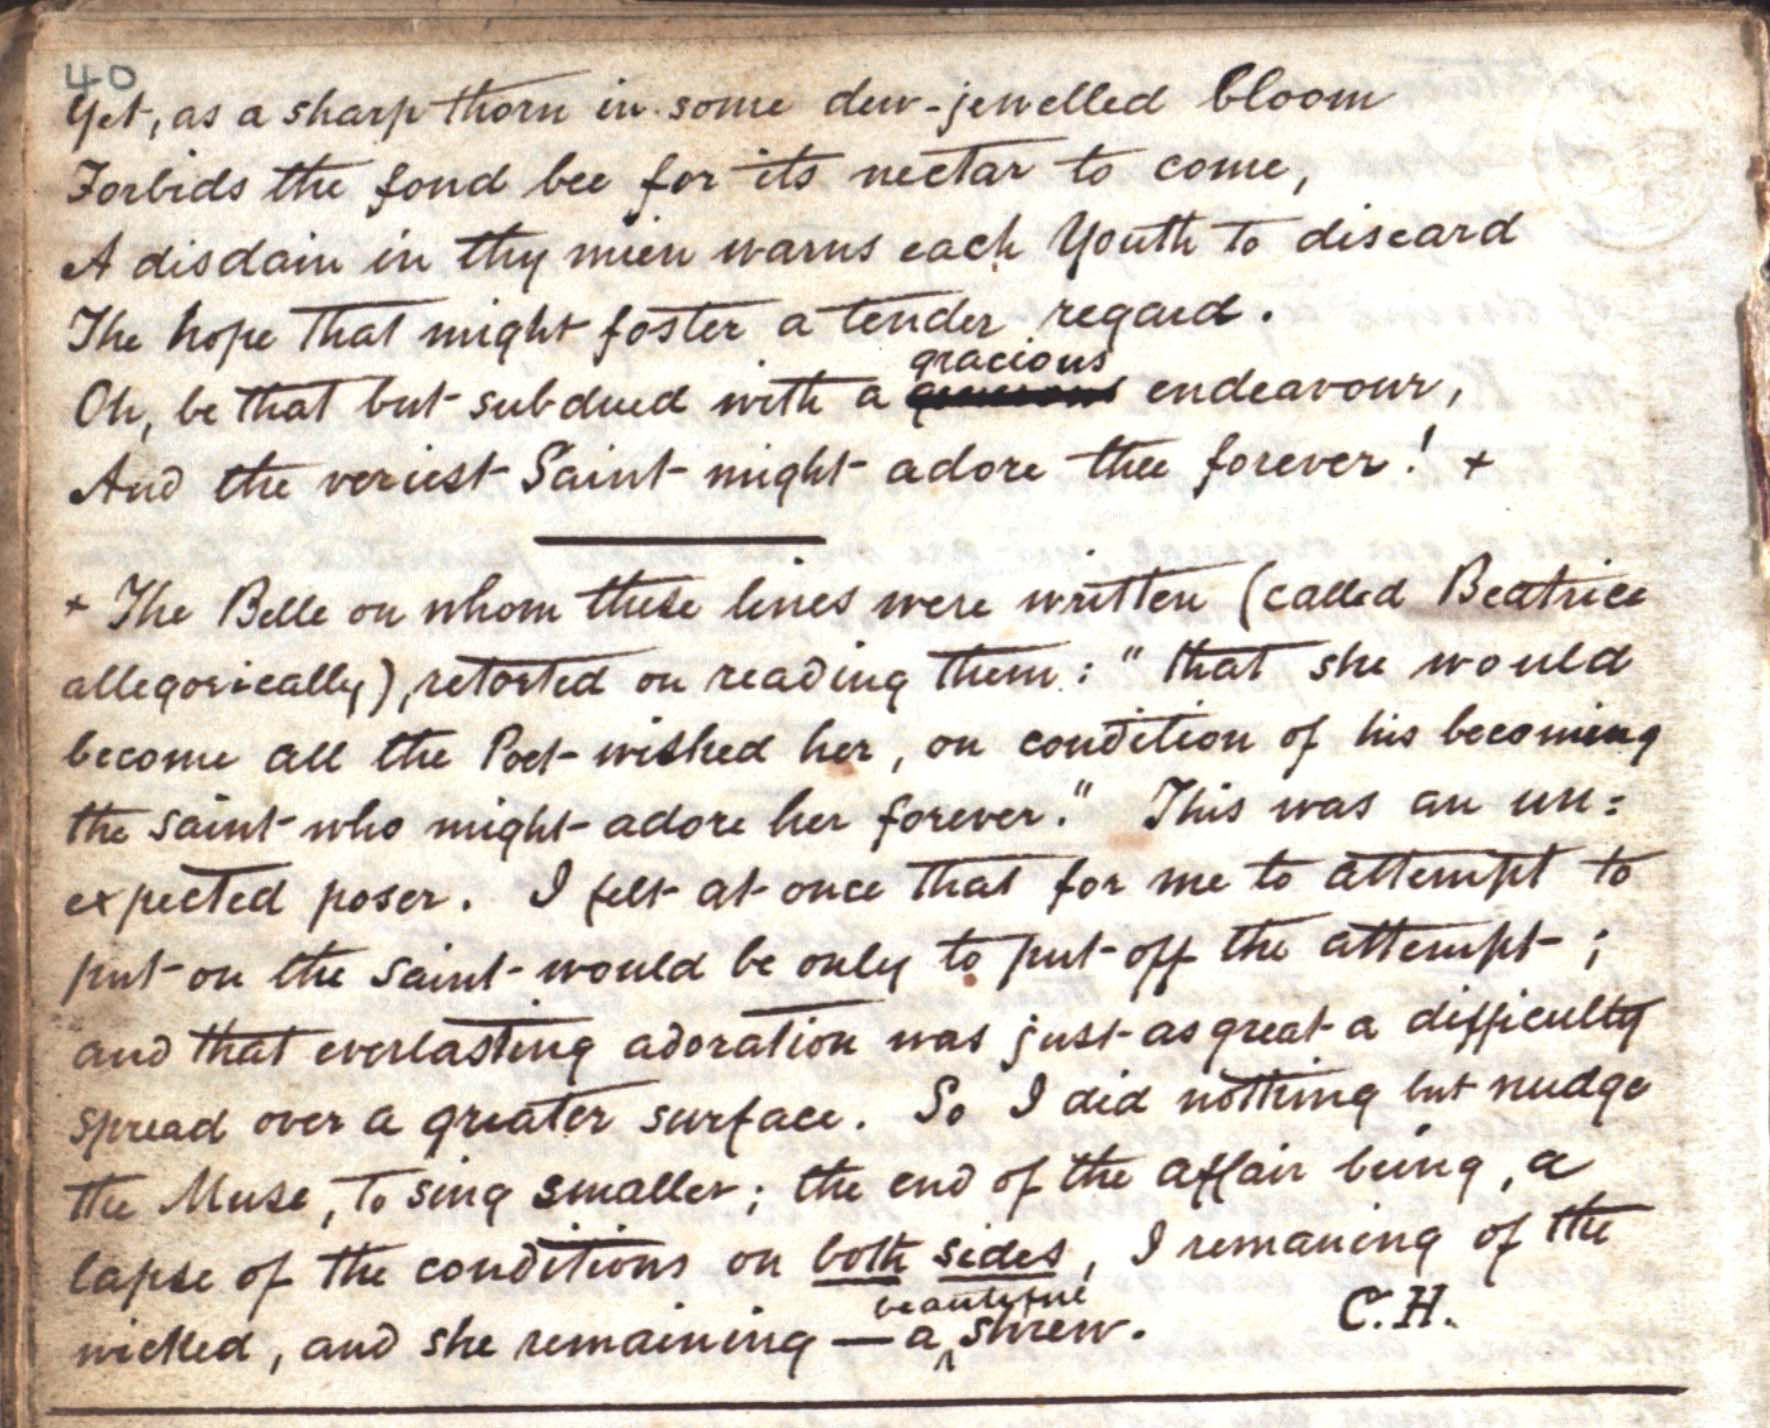 40
Yet, as a sharp thorn in some dew-jewelled bloom
Forbids the fond bee for its nectar to come,
A disdain in thy mien warns each Youth to discard
The hope that might foster a tender regard.
gracious
Oh, be that but subdued with a endeavour,
And the veriest Saint might adore thee forever! +
+ The Belle on whom these lines were written (called Beatrice
allegorically), retorted on reading them: "that she would
become all the Poet wished her, on condition of his becoming
the saint who might adore her forever." This was an un=
expected poser. I felt at once that for me to attempt to
put on the saint would be only to put off the attempt;
and that everlasting adoration was just as great a difficulty
spread over a greater surface. So I did nothing but nudge
the Muse, to sing smaller; the end of the affair being, a
lapse of the conditions on both sides, I remaining of the
beautiful
wicked, and she remaining — a shrew. C.H.